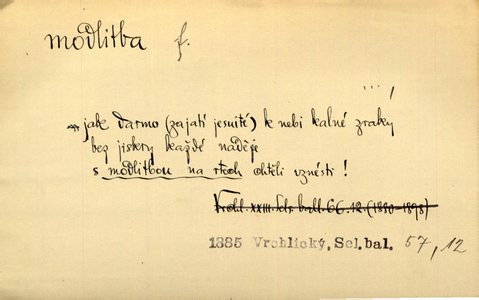 modlitba f.
jak darmo (zajatí jesuité) k nebi kalné zraky
bez jiskry každé naděje
s modlitbou na rtech chtěli vznésti !
Vrchl. XXIII. Selr. ball. 66. 12. (1890-1898)
1885 Vrchlický, Sel. bal. 57, 12